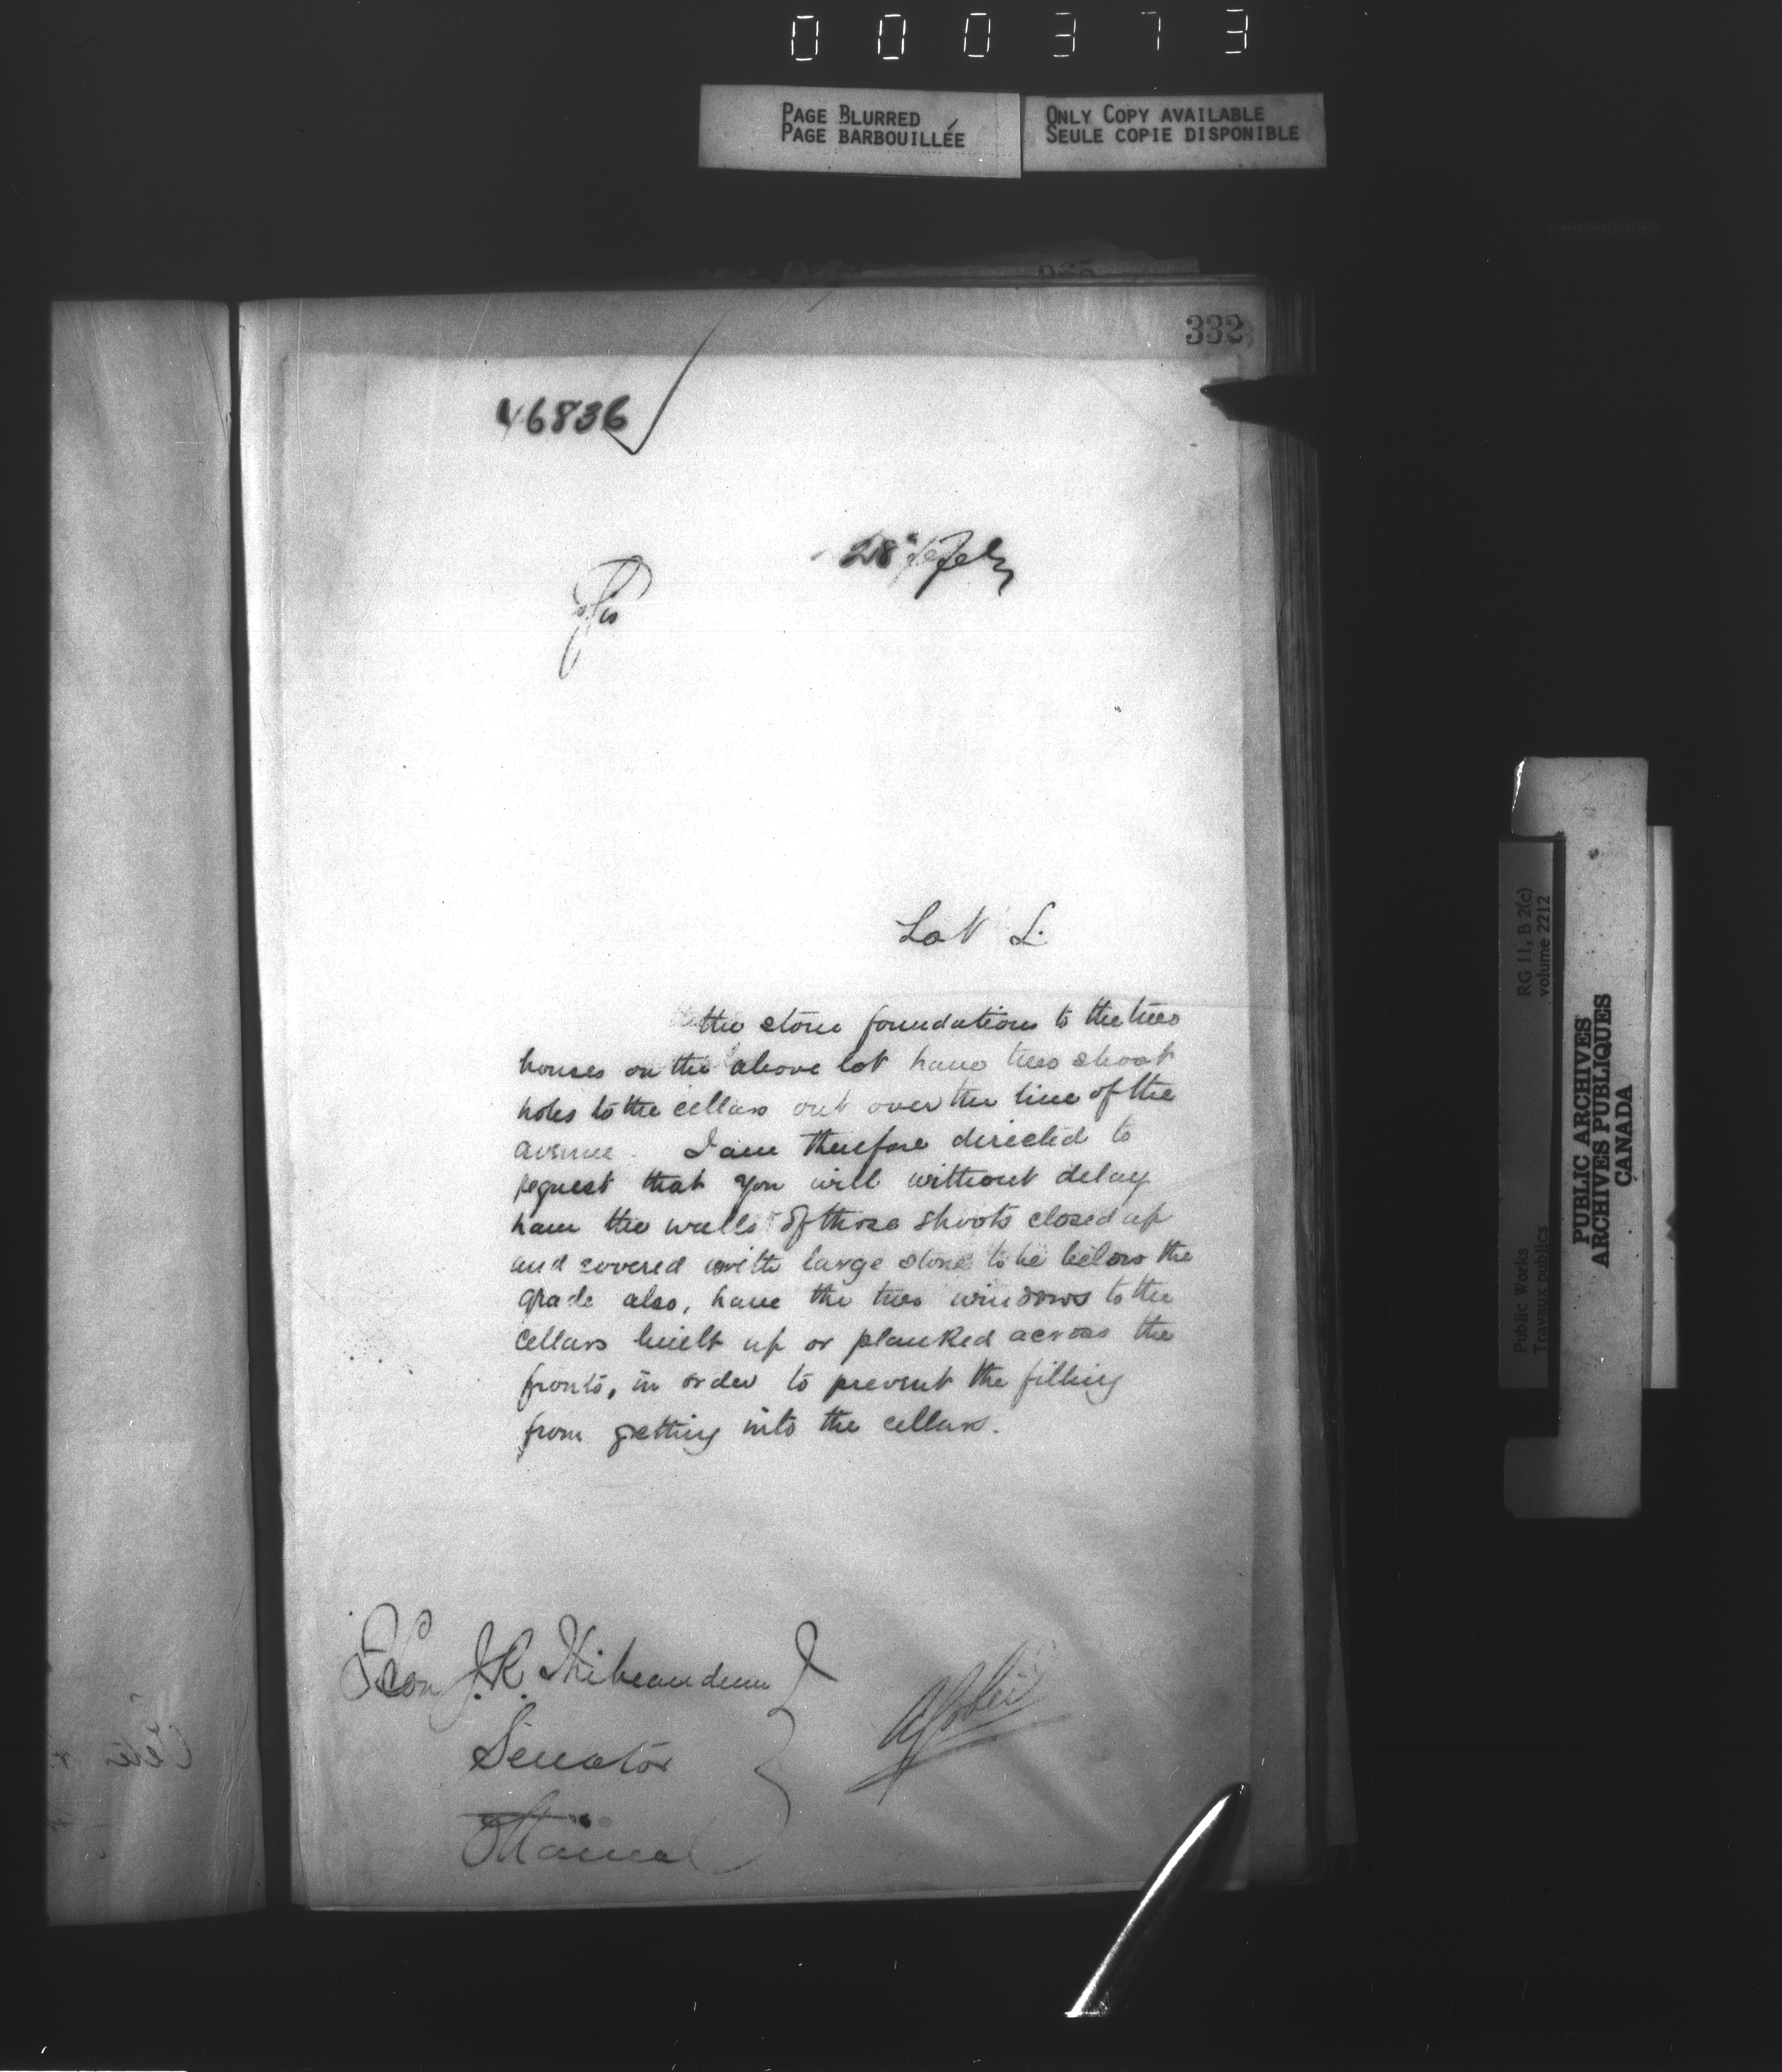 000373
PAGE BLURRED
PAGE BARBOUILLÉE
ONLY COPY AVAILABLE
SEULE COPIE DISPONIBLE
332
46836
28
Lot L.
the stone foundations to the two
houses on the above lot have two shoot
holes to the cellars out over the line of the
avenue. I am therefore directed to
request that you will without delay
have the walls of those shoots closed up
and covered with large stone to be below the
grade also, have the two windows to the
cellars built up or planked across the
fronts, in order to prevent the filling
from getting into the cellars.
Hon J.R. Thibeaudeau
Senator
Ottawa
RG 11, B 2(c)
volume 2212
Public Works
Travaux publics
PUBLIC ARCHIVES
ARCHIVES PUBLIQUES
CANADA